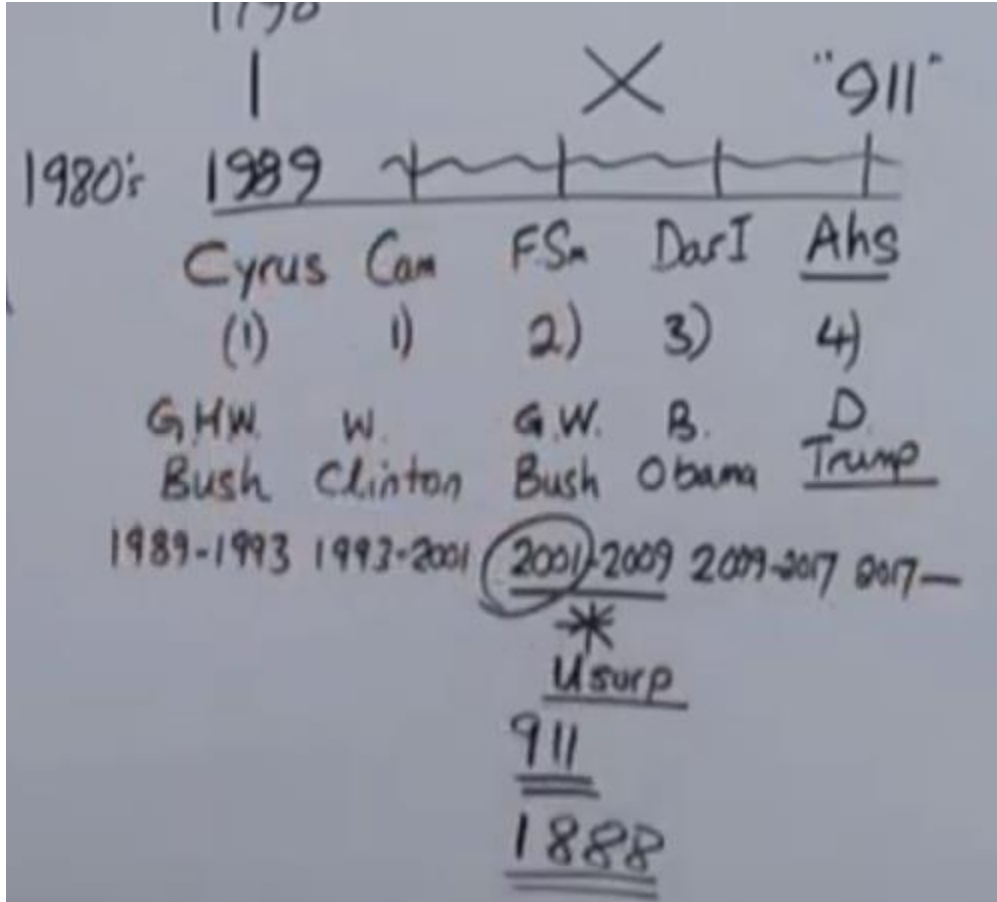 1798
"911"
1980's 1989
Cyrus Cam F.Sm DarI Ahs
(1) 1) 2) 3) 4)
G.H.W. W. G.W. B. D.
Bush Clinton Bush Obama Trump
1989-1993 1993-2001 2001-2009 2009-2017 2017—
Usurp
911
1888